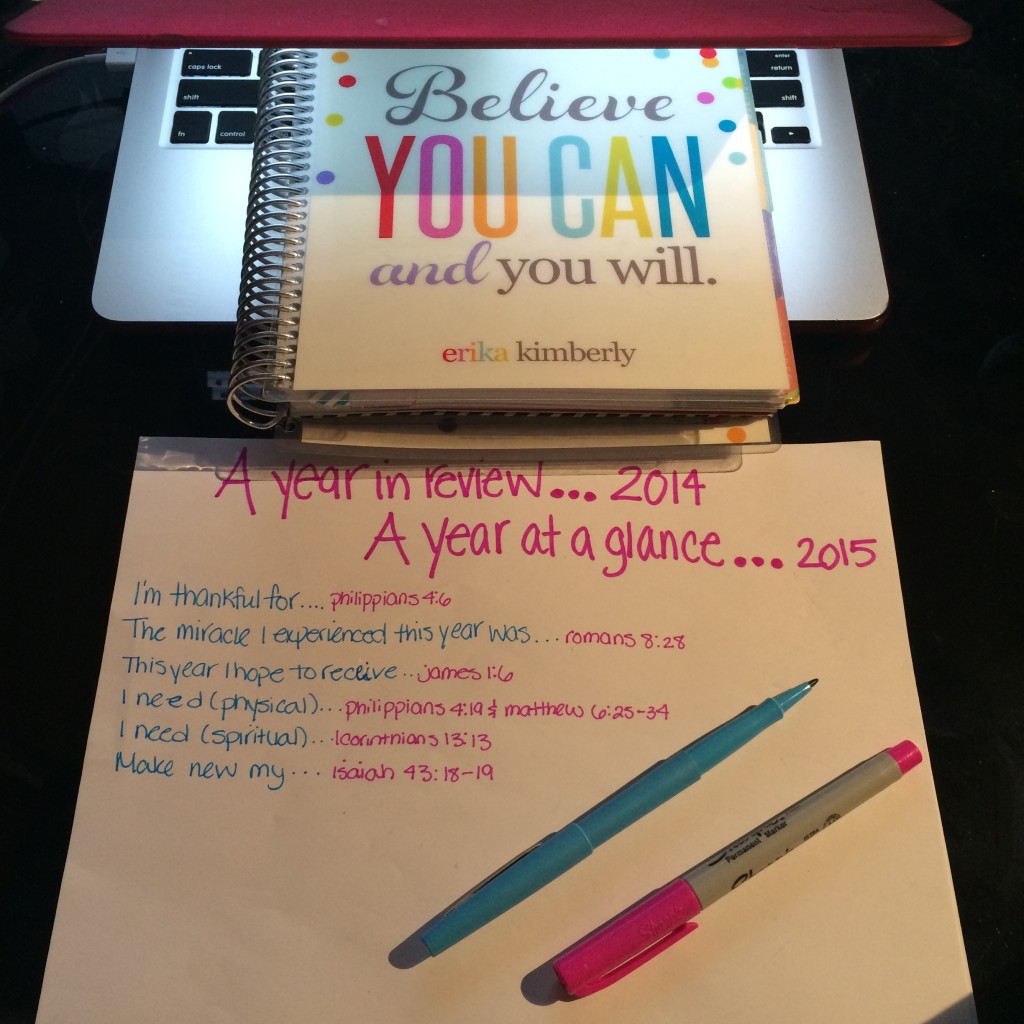 caps lock
shift
fn
control
enter
return
shift
Believe
YOU CAN
and you will.
erika kimberly
A year in review... 2014
A year at a glance... 2015
I'm thankful for.... philippians 4:6
The miracle I experienced this year was... romans 8:28
This year I hope to receive.. james 1:6
I need (physical)... philippians 4:19 & matthew 6:25-34
I need (spiritual)... 1corinthians 13:13
Make new my... isaiah 43:18-19
Permanent Marker